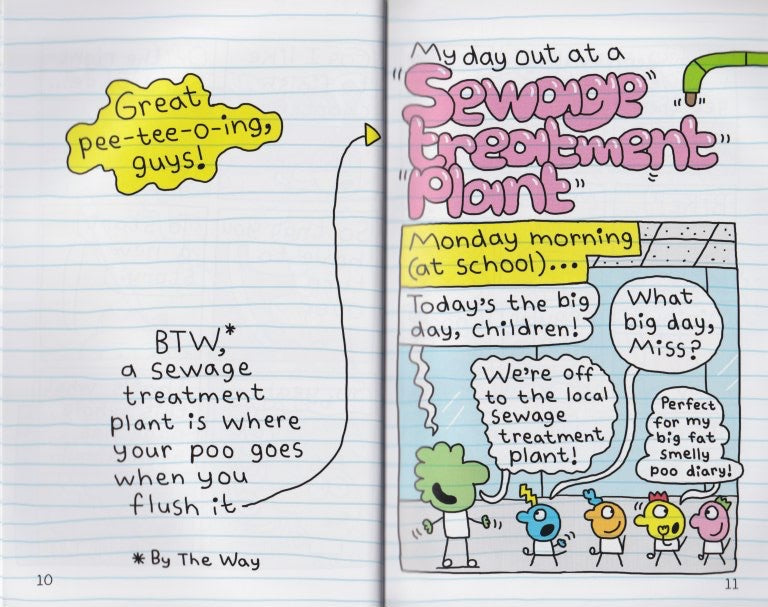 Great
pee-tee-o-ing,
guys!
BTW,*
a sewage
treatment
plant is where
your poo goes
when you
flush it
*By The Way
10
My day out at a
"Sewage"
treatment"
"Plant"
Monday morning
(at school)...
Today's the big
day, children!
What
big day,
Miss?
We're off
to the local
sewage
treatment
plant!
Perfect
for my
big fat
smelly
poo diary!
11